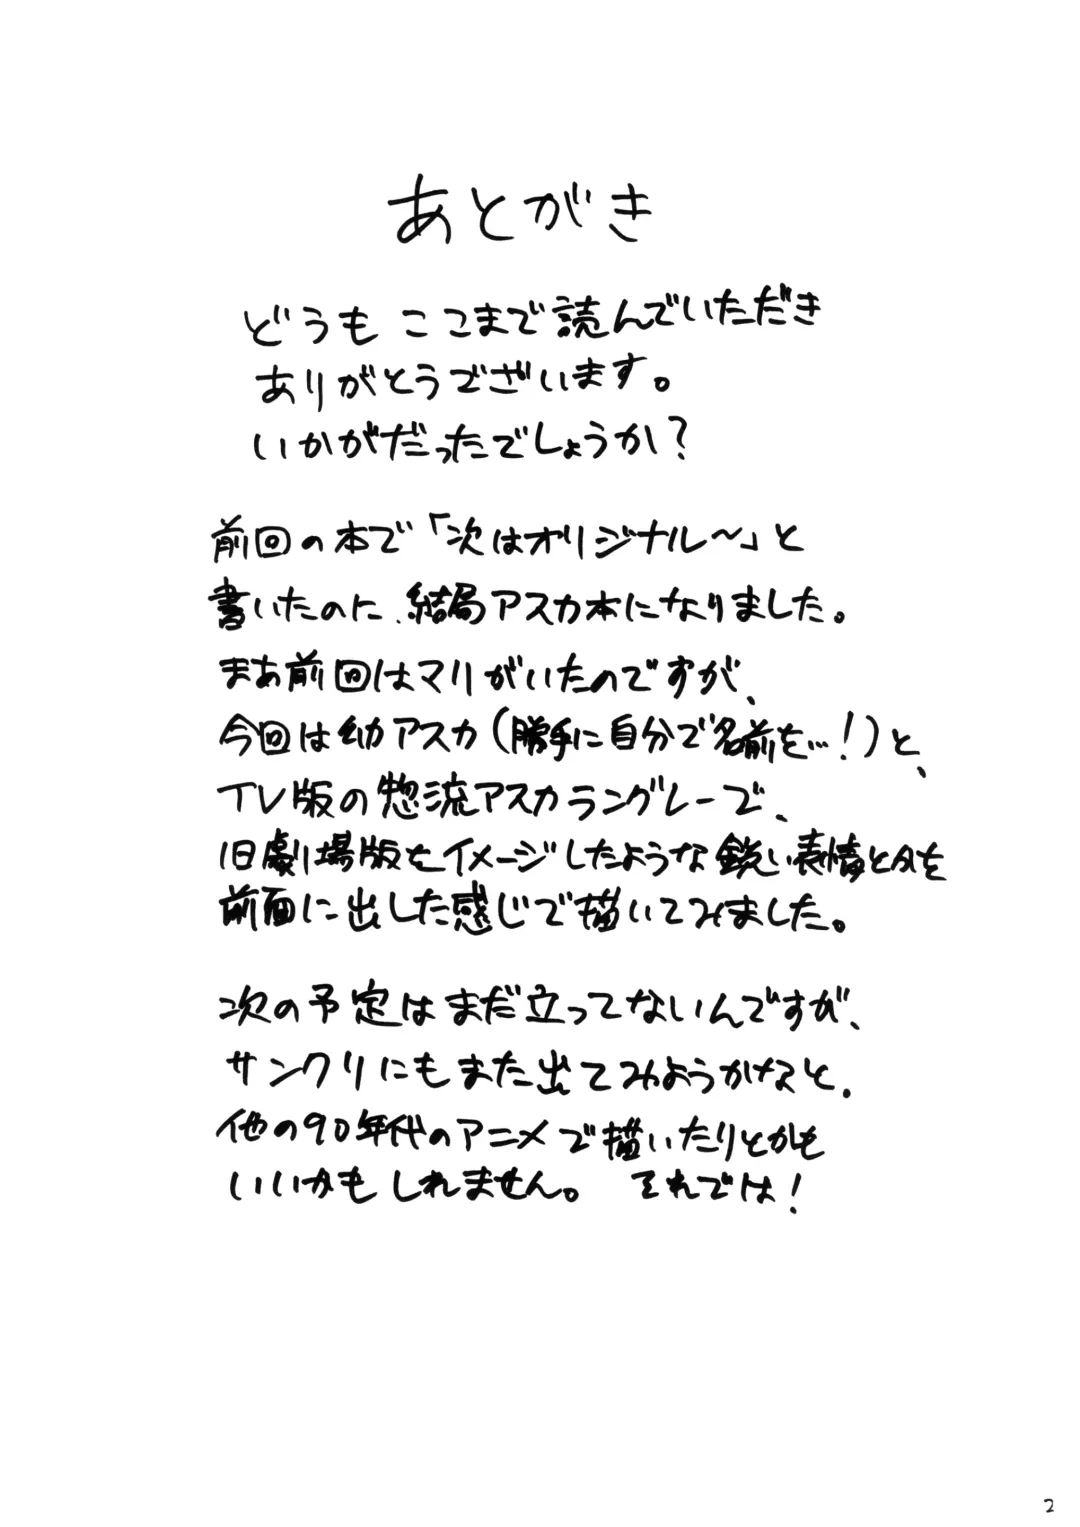 あとがき
どうも ここまで読んでいただき
ありがとうございます。
いかがだったでしょうか?
前回の本で「次はオリジナル〜」と
書いたのに、結局アスカ本になりました。
まあ前回はマリがいたのですが、
今回は幼アスカ(勝手に自分で名前を…!)と、
TV版の惣流アスカラングレーで、
旧劇場版をイメージしたような鋭い表情とかを
前面に出した感じで描いてみました。
次の予定はまだ立ってないんですが、
サンクリにもまた出てみようかなと、
他の90年代のアニメで描いたりとかも
いいかもしれません。 それでは!
2